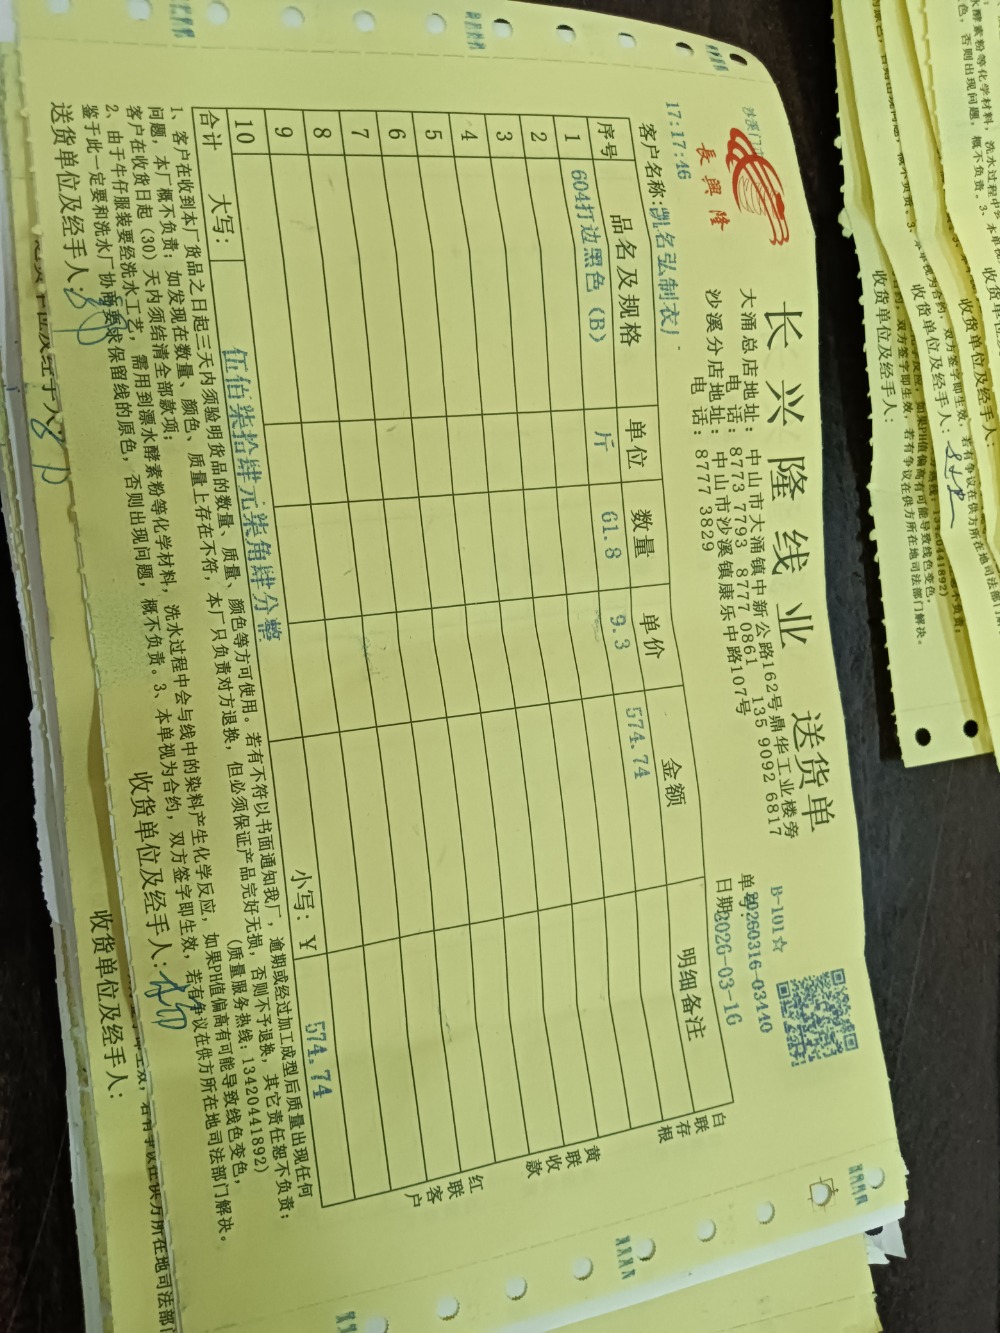 沙溪门市
長興隆
长兴隆线业 送货单
大涌总店地址：中山市大涌镇中新公路162号鼎华工业楼旁
电话：8773 7793 8777 0861 135 9092 6817
沙溪分店地址：中山市沙溪镇康乐中路107号
电话：8777 3829
B-101☆
单号:20260316-03440
日期:2026-03-16
17:17:46
客户名称:凯名弘制衣厂
序号 品名及规格 单位 数量 单价 金额 明细备注
1 604打边黑色（B） 斤 61.8 9.3 574.74
2
3
4
5
6
7
8
9
10
合计 大写： 伍佰柒拾肆元柒角肆分整 小写：￥ 574.74
白联存根
黄联收款
红联客户
1、客户在收到本厂货品之日起三天内须验明货品的数量、质量、颜色等方可使用。若有不符以书面通知我厂，逾期或经过加工成型后质量出现任何
问题，本厂概不负责；如发现在数量、颜色、质量上存在不符，本厂只负责对方退换，但必须保证产品完好无损，否则不予退换，其它责任恕不负责；
客户在收货日起（30）天内须结清全部款项； （质量服务热线：13420441892）
2、由于牛仔服装要经洗水工艺，需用到漂水酵素粉等化学材料，洗水过程中会与线中的染料产生化学反应，如果PH值偏高有可能导致线色变色，
鉴于此一定要和洗水厂协商要求保留线的原色，否则出现问题，概不负责。3、本单视为合约，双方签字即生效，若有争议在供方所在地司法部门解决。
送货单位及经手人： 收货单位及经手人：
收货单位及经手人：
收货单位及经手人：
收货单位及经手人：
收货单位及经手人：